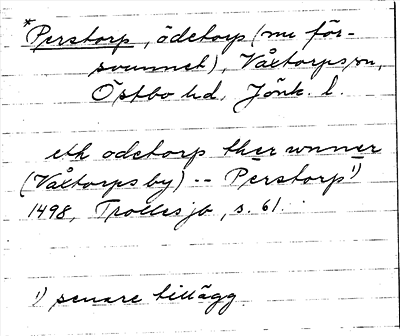 *Perstorp, ödetorp (nu för-
svunnet), Våxtorps sn,
Östbo hd, Jönk. l.
eth odetorp ther wnner
(Våxtorps by) -- Perstorp 1)
1498, Trolles jb, s. 61.
1) senare tillägg